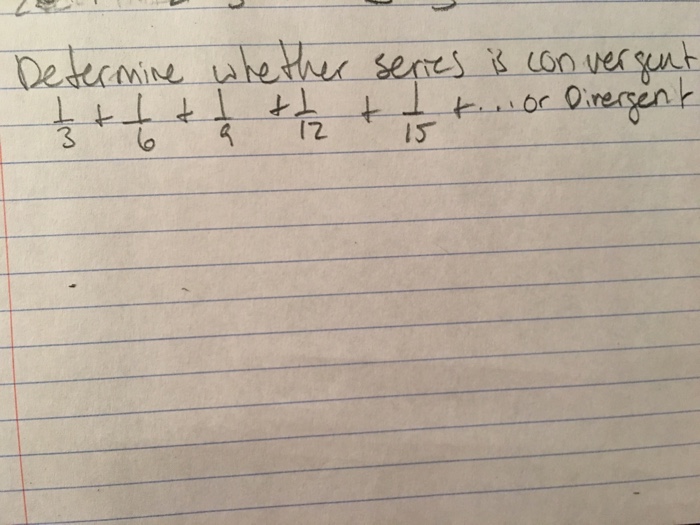 Determine whether series is convergent
1/3 + 1/6 + 1/9 + 1/12 + 1/15 + ... or Divergent